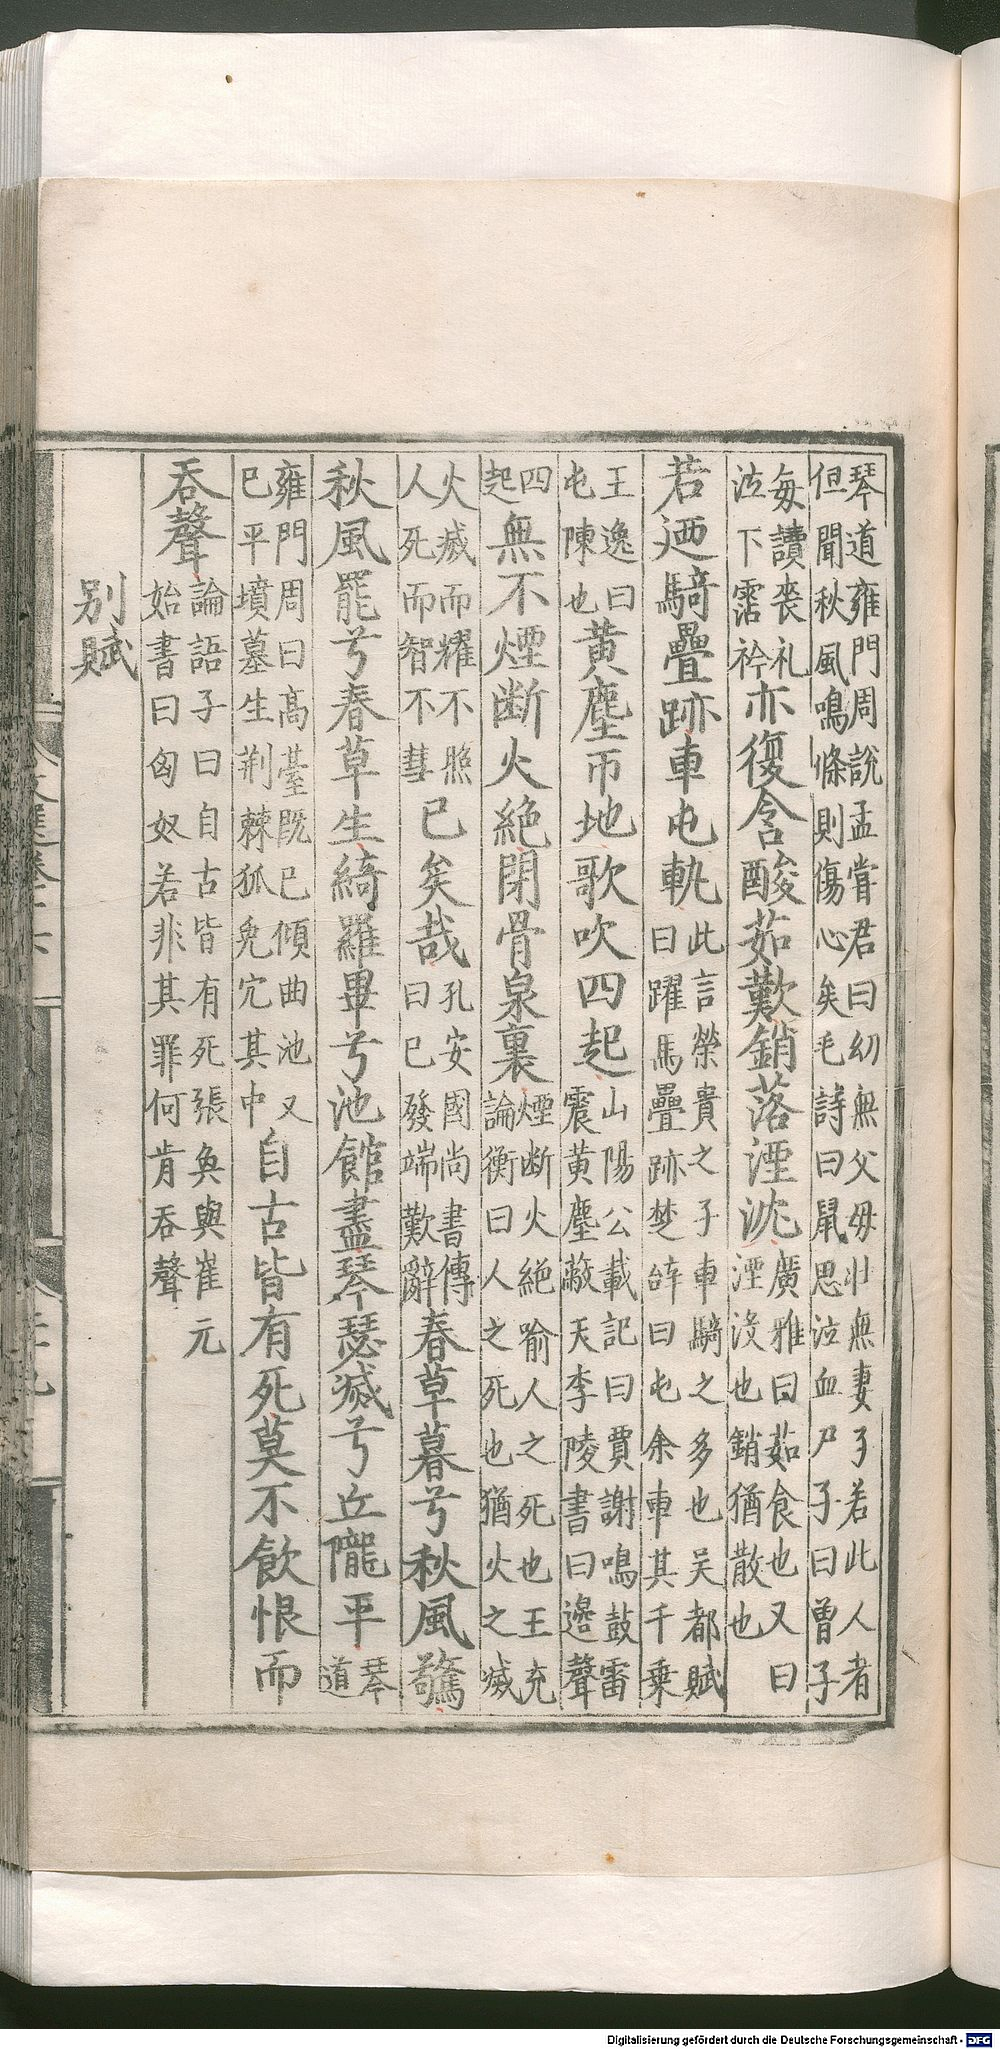 琴道雍門周説孟嘗君曰幼無父母壯無妻子若此人者
但聞秋風鳴條則傷心矣毛詩曰鼠思泣血尸子曰曾子
每讀喪礼
泣下霑衿
亦復含酸茹歎銷落湮沈
廣雅曰茹食也又曰
湮没也銷猶散也
若迺騎疊跡車屯軌
此言榮貴之子車騎之多也吴都賦
曰躍馬疊跡楚辞曰屯余車其千乗
王逸曰
屯陳也
黄塵帀地歌吹四起
山陽公載記曰賈謝鳴鼓雷
震黄塵蔽天李陵書曰邉聲
四
起
無不煙断火絶閉骨泉裏
煙断火絶喻人之死也王充
論衡曰人之死也猶火之滅
火滅而耀不照
人死而智不彗
已矣哉
孔安國尚書傳
曰已發端歎辭
春草暮兮秋風驚
秋風罷兮春草生綺羅畢兮池館盡琴瑟滅兮丘隴平
琴
道
雍門周曰高臺既已傾曲池又
已平墳墓生荆棘狐兔穴其中
自古皆有死莫不飲恨而
吞聲
論語子曰自古皆有死張奐與崔元
始書曰匈奴若非其罪何肯吞聲
别賦
Digitalisierung gefördert durch die Deutsche Forschungsgemeinschaft - DFG